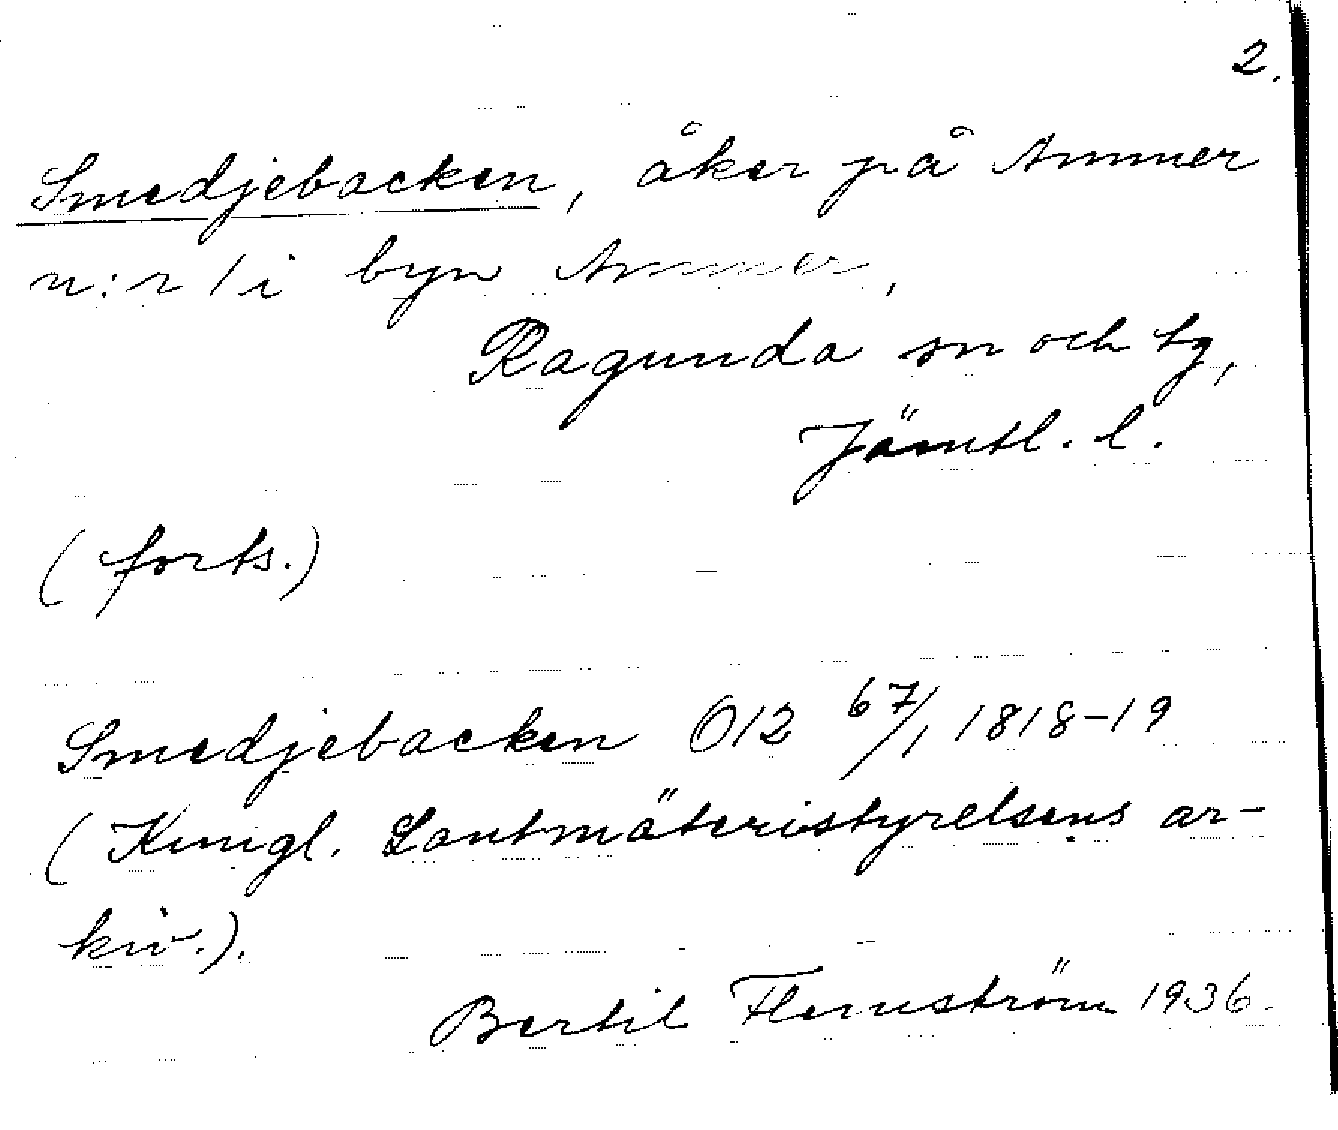 2.
Smedjebacken, åker på Ammer
n:r 1 i byn Ammer,
Ragunda sn och tg,
Jämtl. l.
(forts.)
Smedjebacken O12 67/1 1818-19
(Kungl. Lantmäteristyrelsens ar-
kiv.).
Bertil Flemström 1936.